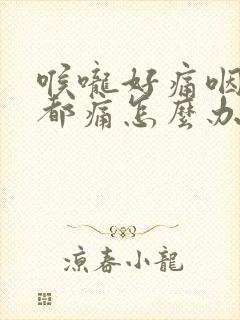 喉嚨好痛咽
都痛怎麼办
涼春小龍